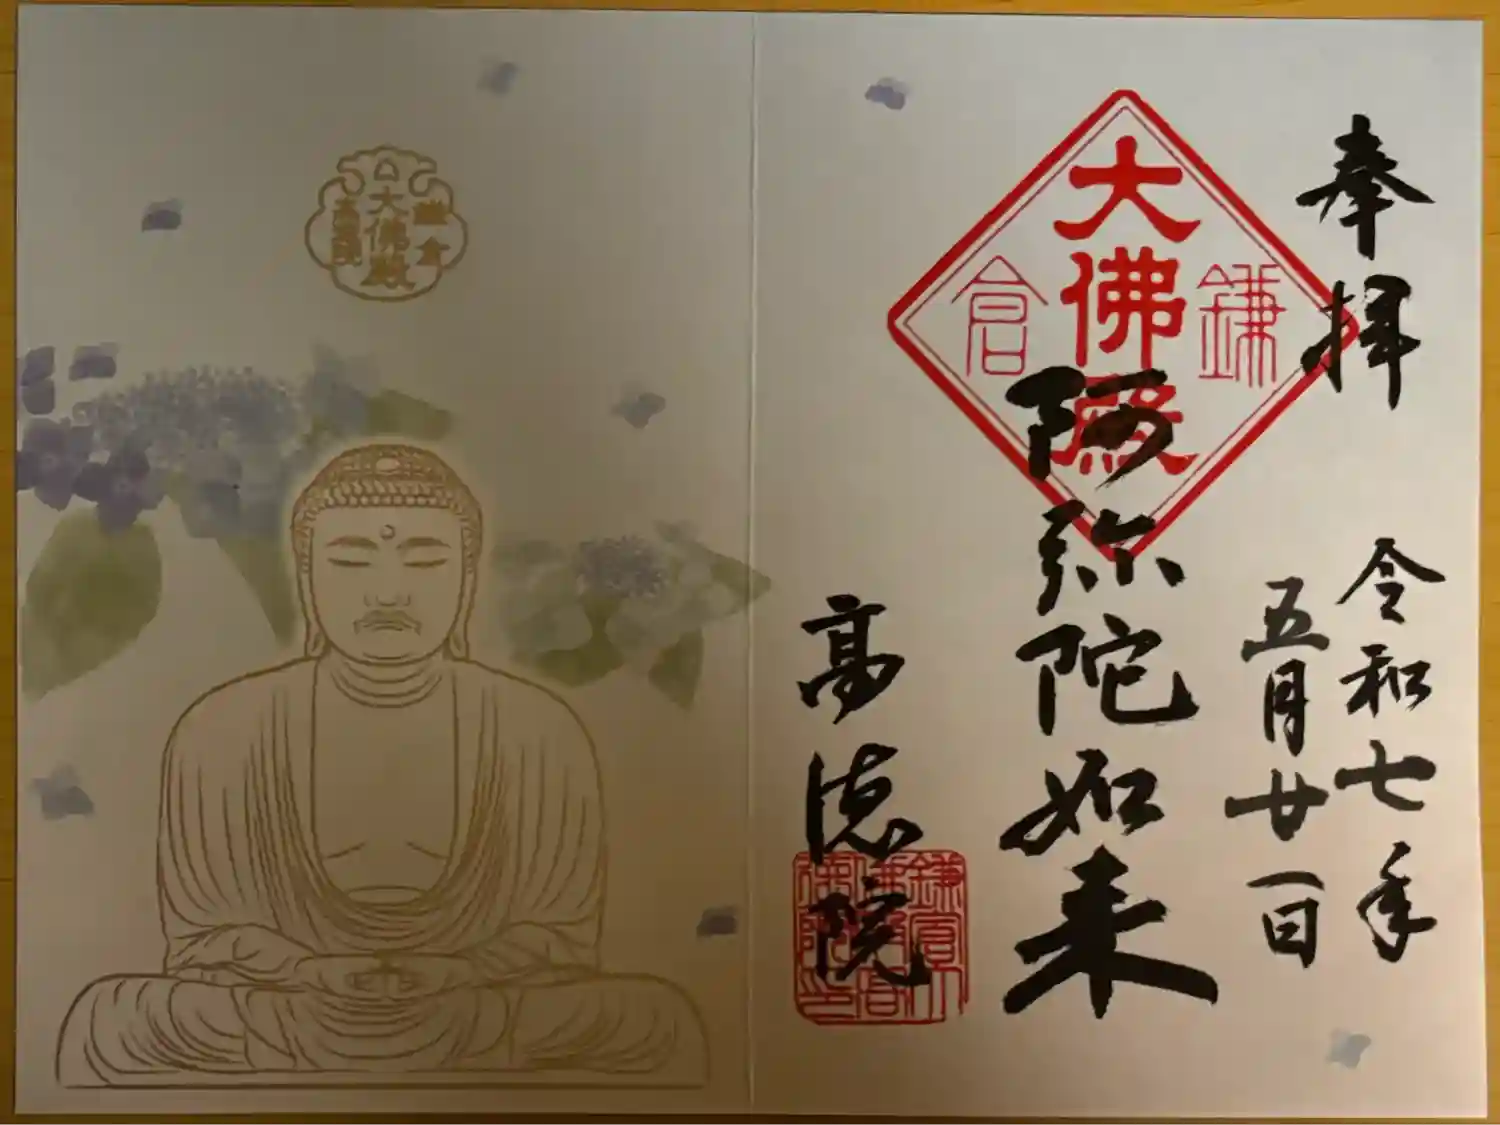 奉拝
令和七年
五月廿一日
鎌倉
大佛殿
阿弥陀如来
高徳院
鎌倉
大佛殿
高徳院